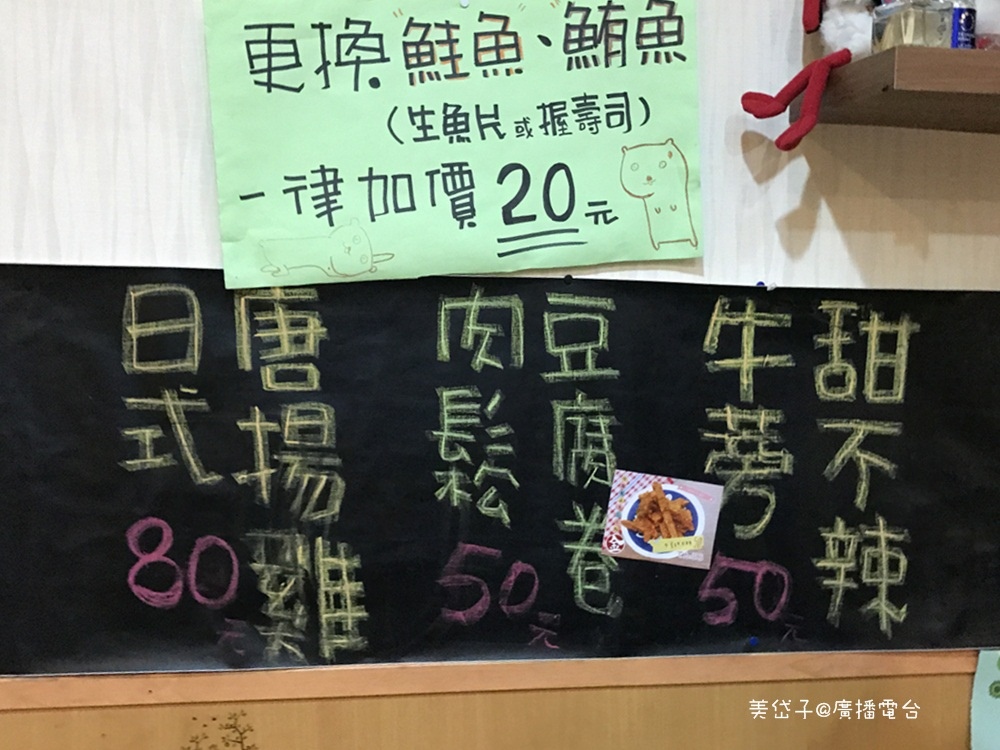 更換鮭魚、鮪魚
（生魚片或握壽司）
一律加價20元
日式
唐揚雞
80元
肉鬆
豆腐卷
50元
牛蒡
甜不辣
50元
美岱子@廣播電台